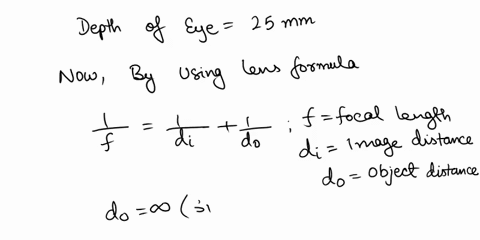 Depth of Eye = 25 mm
Now, By Using Lens formula
1/f = 1/di + 1/do ; f = focal length
di = Image distance
do = Object distance
do = ∞ (